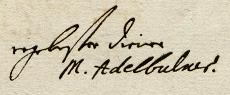 ergebenster Diener
M. Adelbulner.